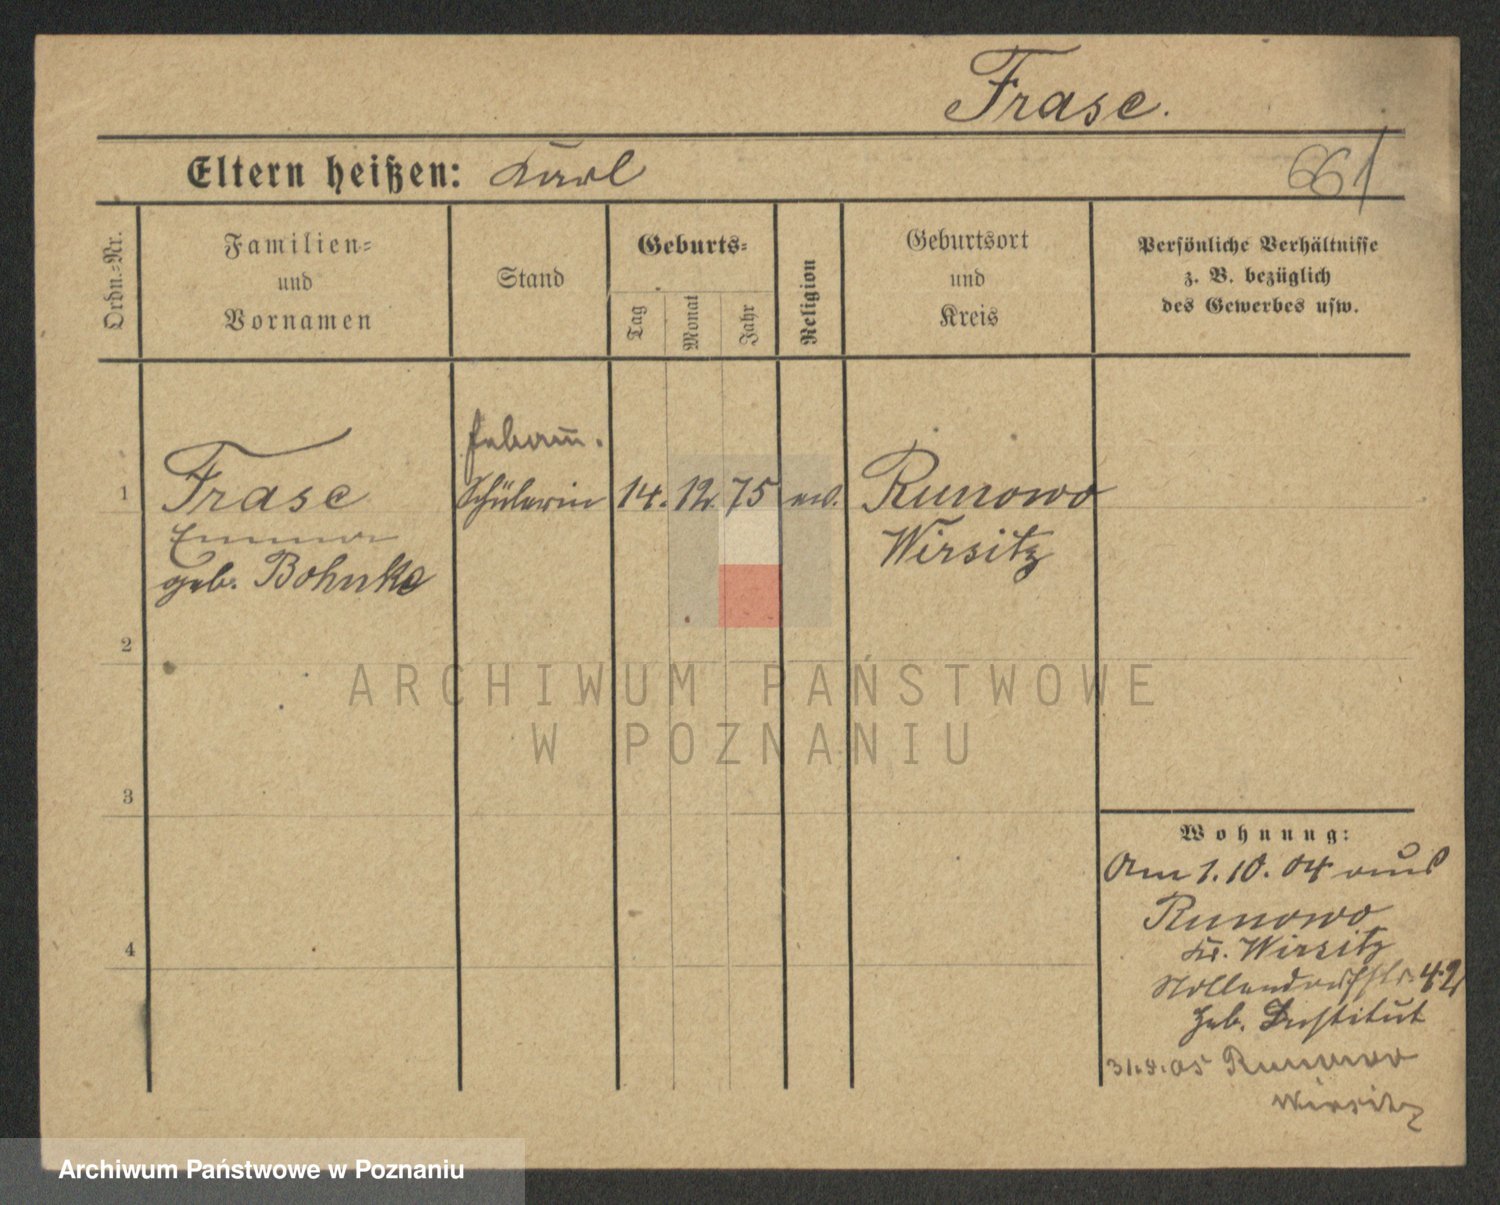 Frase.
Eltern heißen: Karl
661
Ordn.-Nr.
Familien-
und
Vornamen
Stand
Geburts-
Tag
Monat
Jahr
Religion
Geburtsort
und
Kreis
Persönliche Verhältnisse
z. B. bezüglich
des Gewerbes usw.
Hebam.
1 Frase Schülerin 14. 12. 75 ev. Runowo
Emma Wirsitz
geb. Bohnke
2
ARCHIWUM PAŃSTWOWE
W POZNANIU
3
4
Wohnung:
Am 1.10.04 aus
Runowo
Kr. Wirsitz
42
Heb. Institut
05 Runowo
Wirsitz
Archiwum Państwowe w Poznaniu